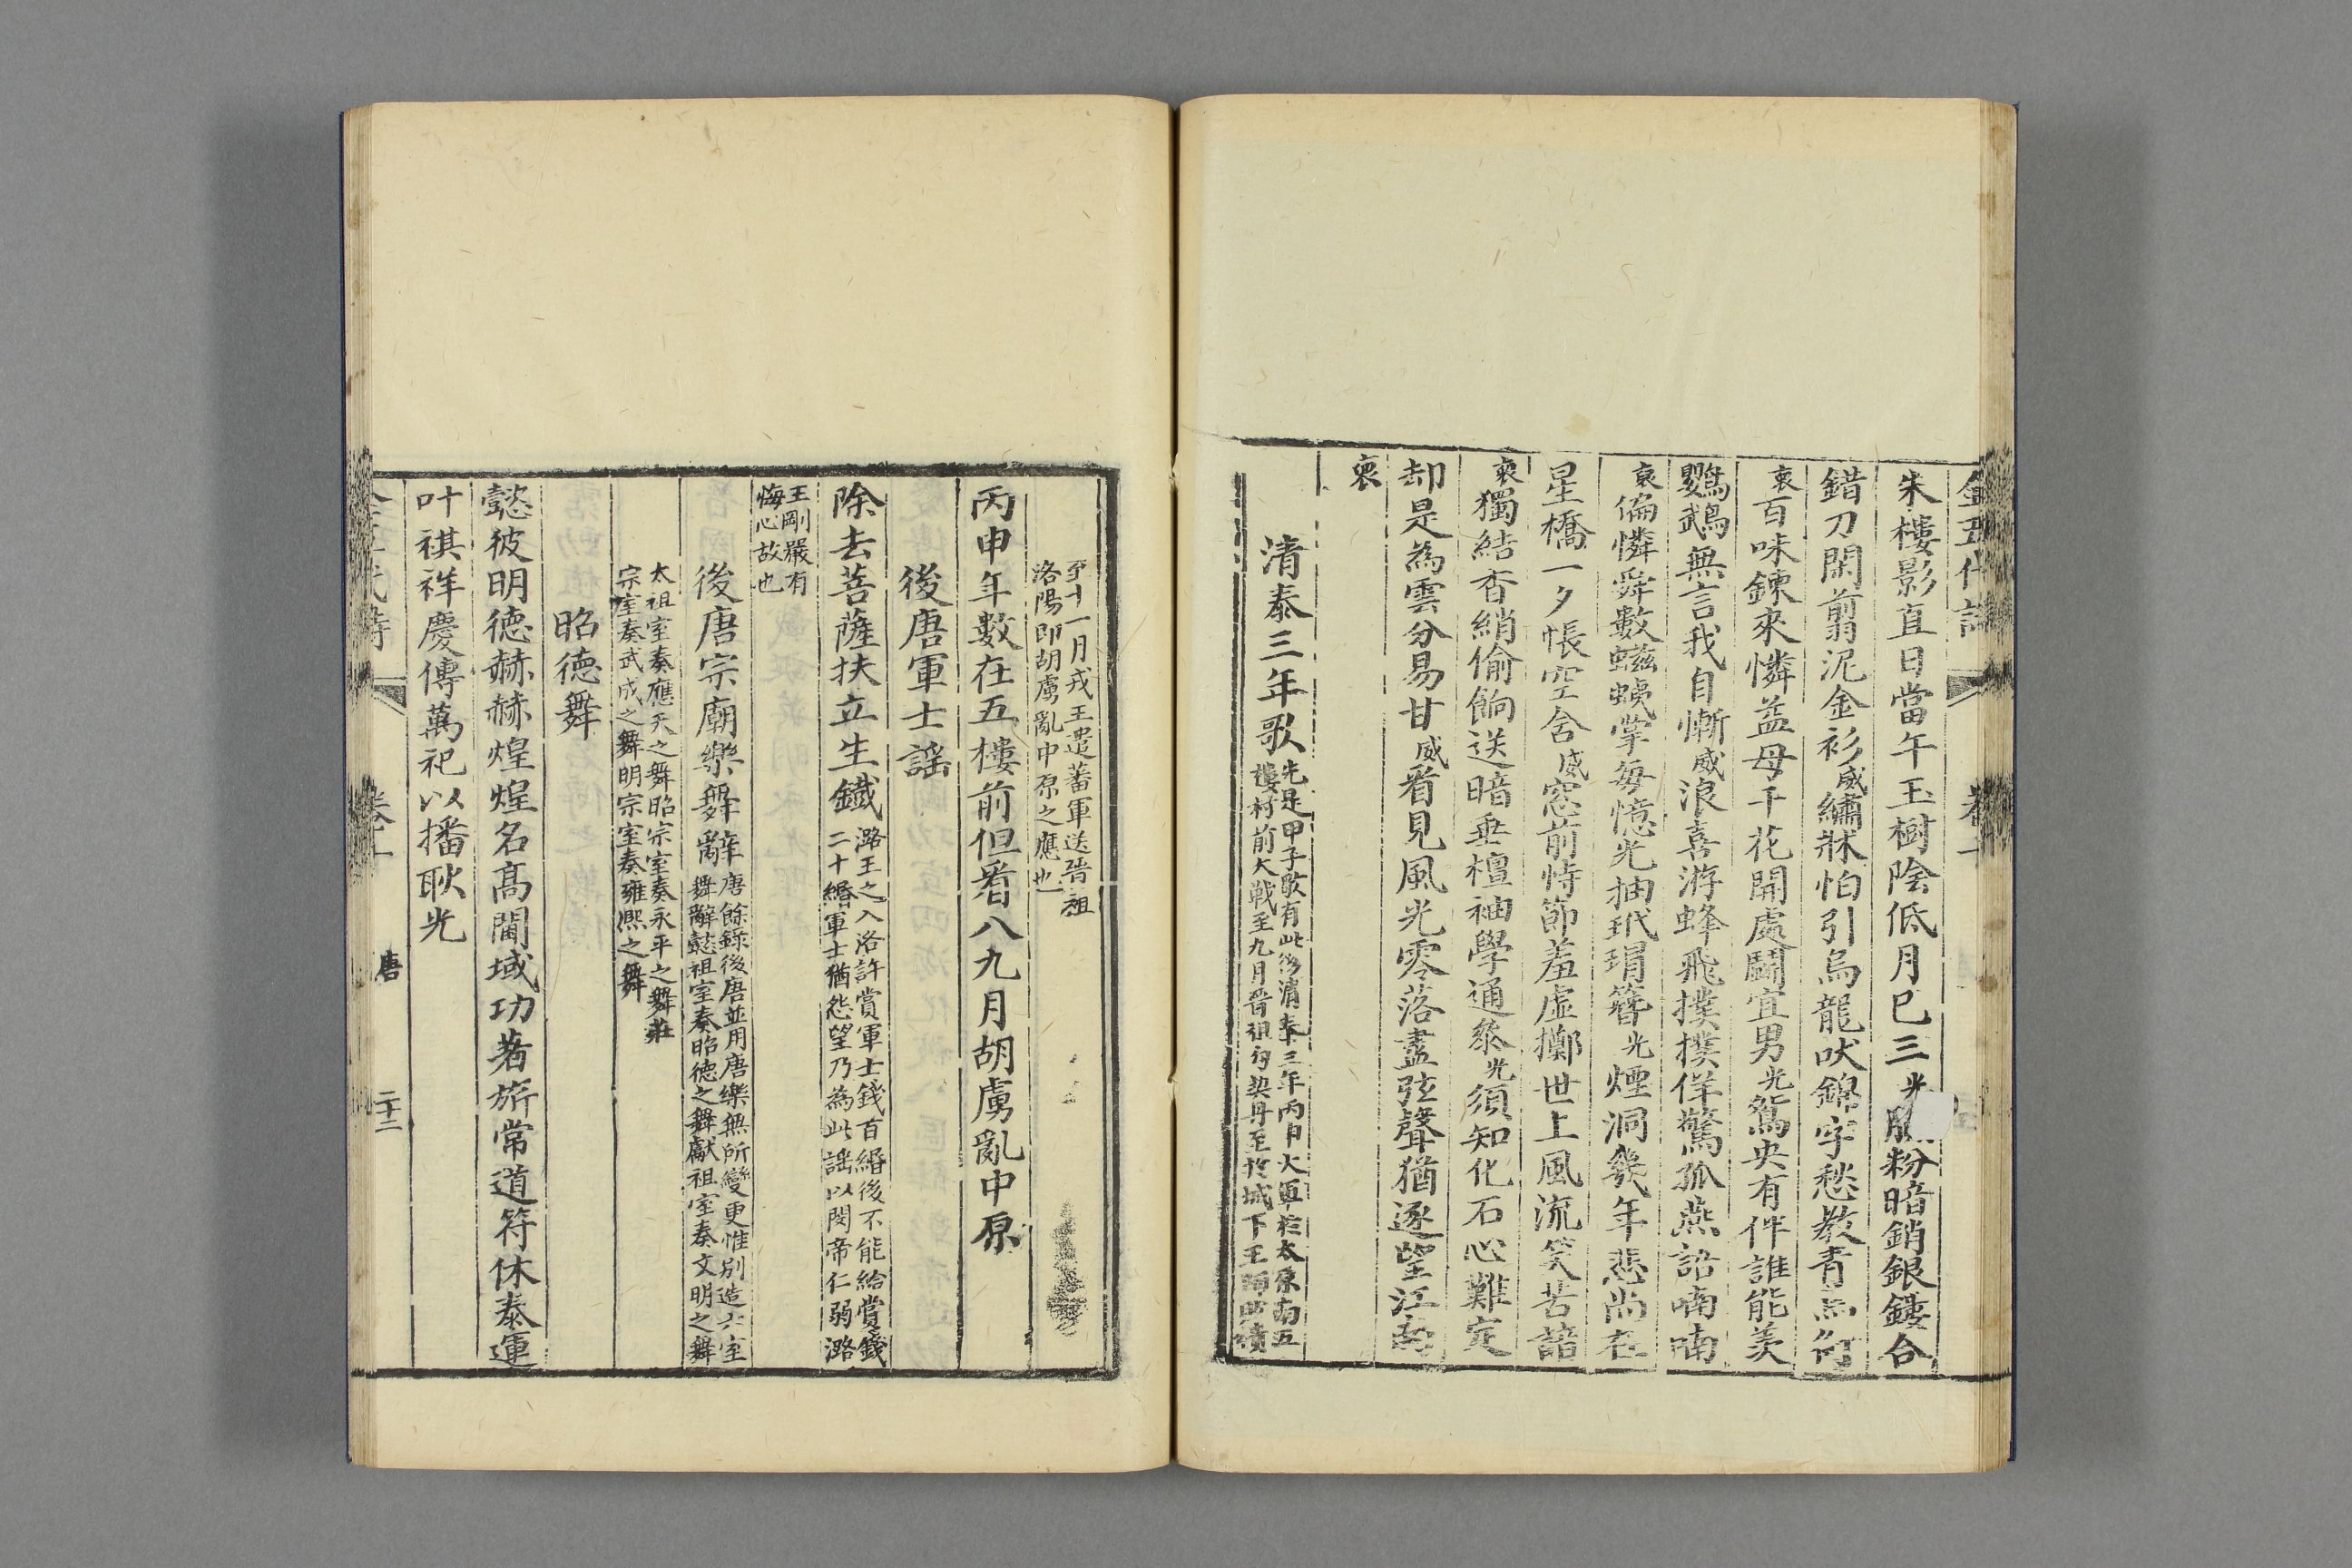 朱樓影直日當午玉樹陰低月已三光膩粉暗銷銀鏤合
錯刀閑翦泥金衫威繡牀怕引烏龍吠錦字愁教青鳥銜
裒百味鍊來憐益母千花開處鬭宜男光鴛央有伴誰能羨
鸚鵡無言我自慚威浪喜游蜂飛撲撲佯驚孤燕語喃喃
裒偏憐舜數蝤蛦掌每憶光抽玳瑁簪光煙洞幾年悲尚在
星橋一夕悵空含威窓前時節羞虛擲世上風流笑苦諳
裒獨結香綃偷餉送暗垂檀袖學通叅光須知化石心難定
却是為雲分易甘威看見風光零落盡弦聲猶逐望江南
裒
清泰三年歌
先是甲子歌有此後清泰三年丙申大軍於太原南五
樓村前大戰至九月晉祖勾契丹至於城下王師敗績
至十一月戎王遣蕃軍送晉祖
洛陽即胡虜亂中原之應也
丙申年數在五樓前但看八九月胡虜亂中原
後唐軍士謠
除去菩薩扶立生鐵
潞王之入洛許賞軍士錢百緡後不能給賞錢
二十緡軍士猶怨望乃為此謠以閔帝仁弱潞
王剛嚴有
悔心故也
後唐宗廟樂舞辭
唐餘錄後唐並用唐樂無所變更惟別造六室
舞辭懿祖室奏昭德之舞獻祖室奏文明之舞
太祖室奏應天之舞昭宗室奏永平之舞莊
宗室奏武成之舞明宗室奏雍熙之舞
昭德舞
懿彼明德赫赫煌煌名高閫域功著旂常道符休泰運
叶祺祥慶傳萬祀以播耿光
唐
二十二